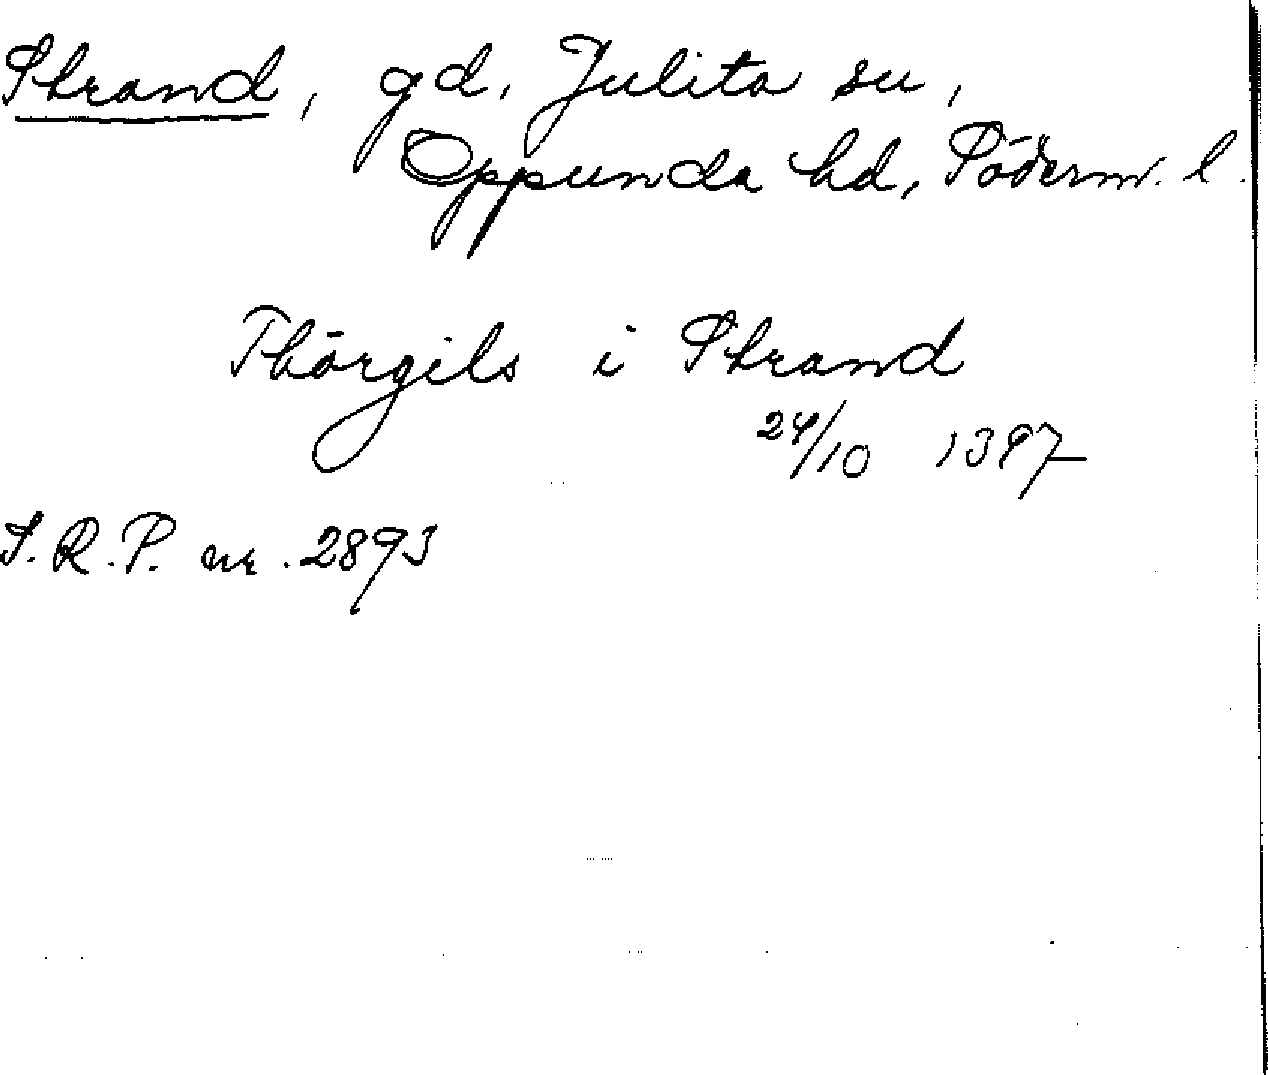 Strand, gd, Julita sn,
Oppunda hd, Söderm. l.
Thörgils i Strand
24/10 1397
S.R.P. nr. 2893